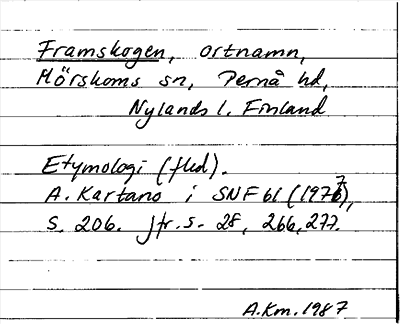 Framskogen, ortnamn,
Mörskoms sn, Pernå hd,
Nylands l. Finland
Etymologi (fled).
A. Kartano i SNF 61 (1977),
s. 206. Jfr. s. 28, 266, 277.
A.Km. 1987